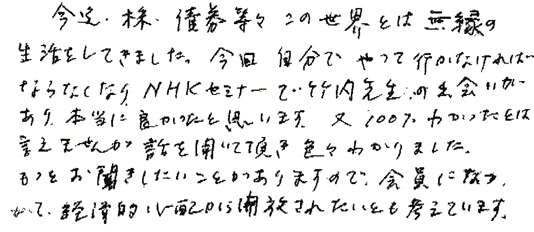 今迄、株、債券等々この世界とは無縁の
生活をしてきました。今回自分でやって行かなければ
ならなくなり NHKセミナーで竹内先生の出会いが
あり、本当に良かったと思います。又100%わかったとは
言えませんが話を聞いて頂き色々わかりました。
もっとお聞きしたいことがありますので、会員になっ
て、経済的心配から開放されたいとも考えています。